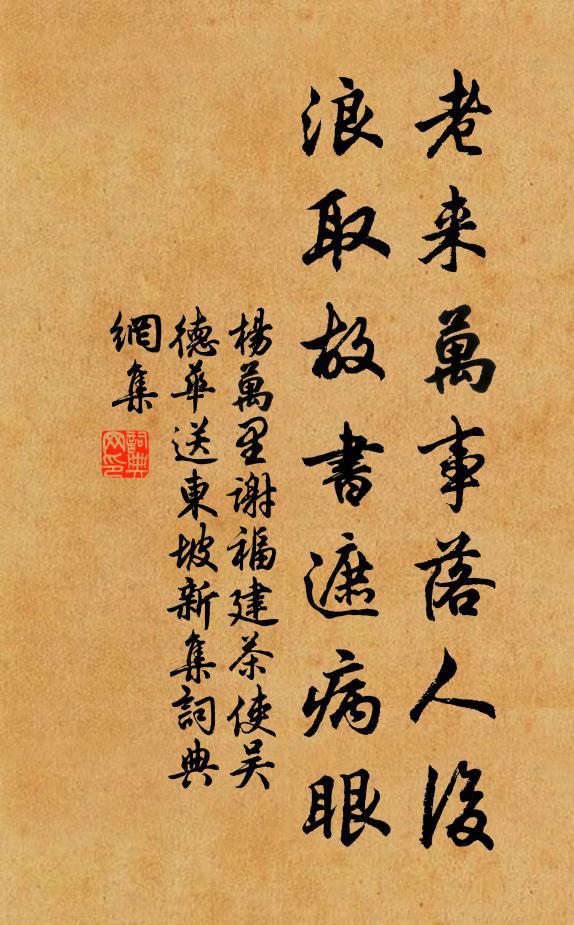 老来萬事落人後
浪取故書遮病眼
楊萬里謝福建茶使吴
德華送東坡新集詞典
網集
詞典
网印